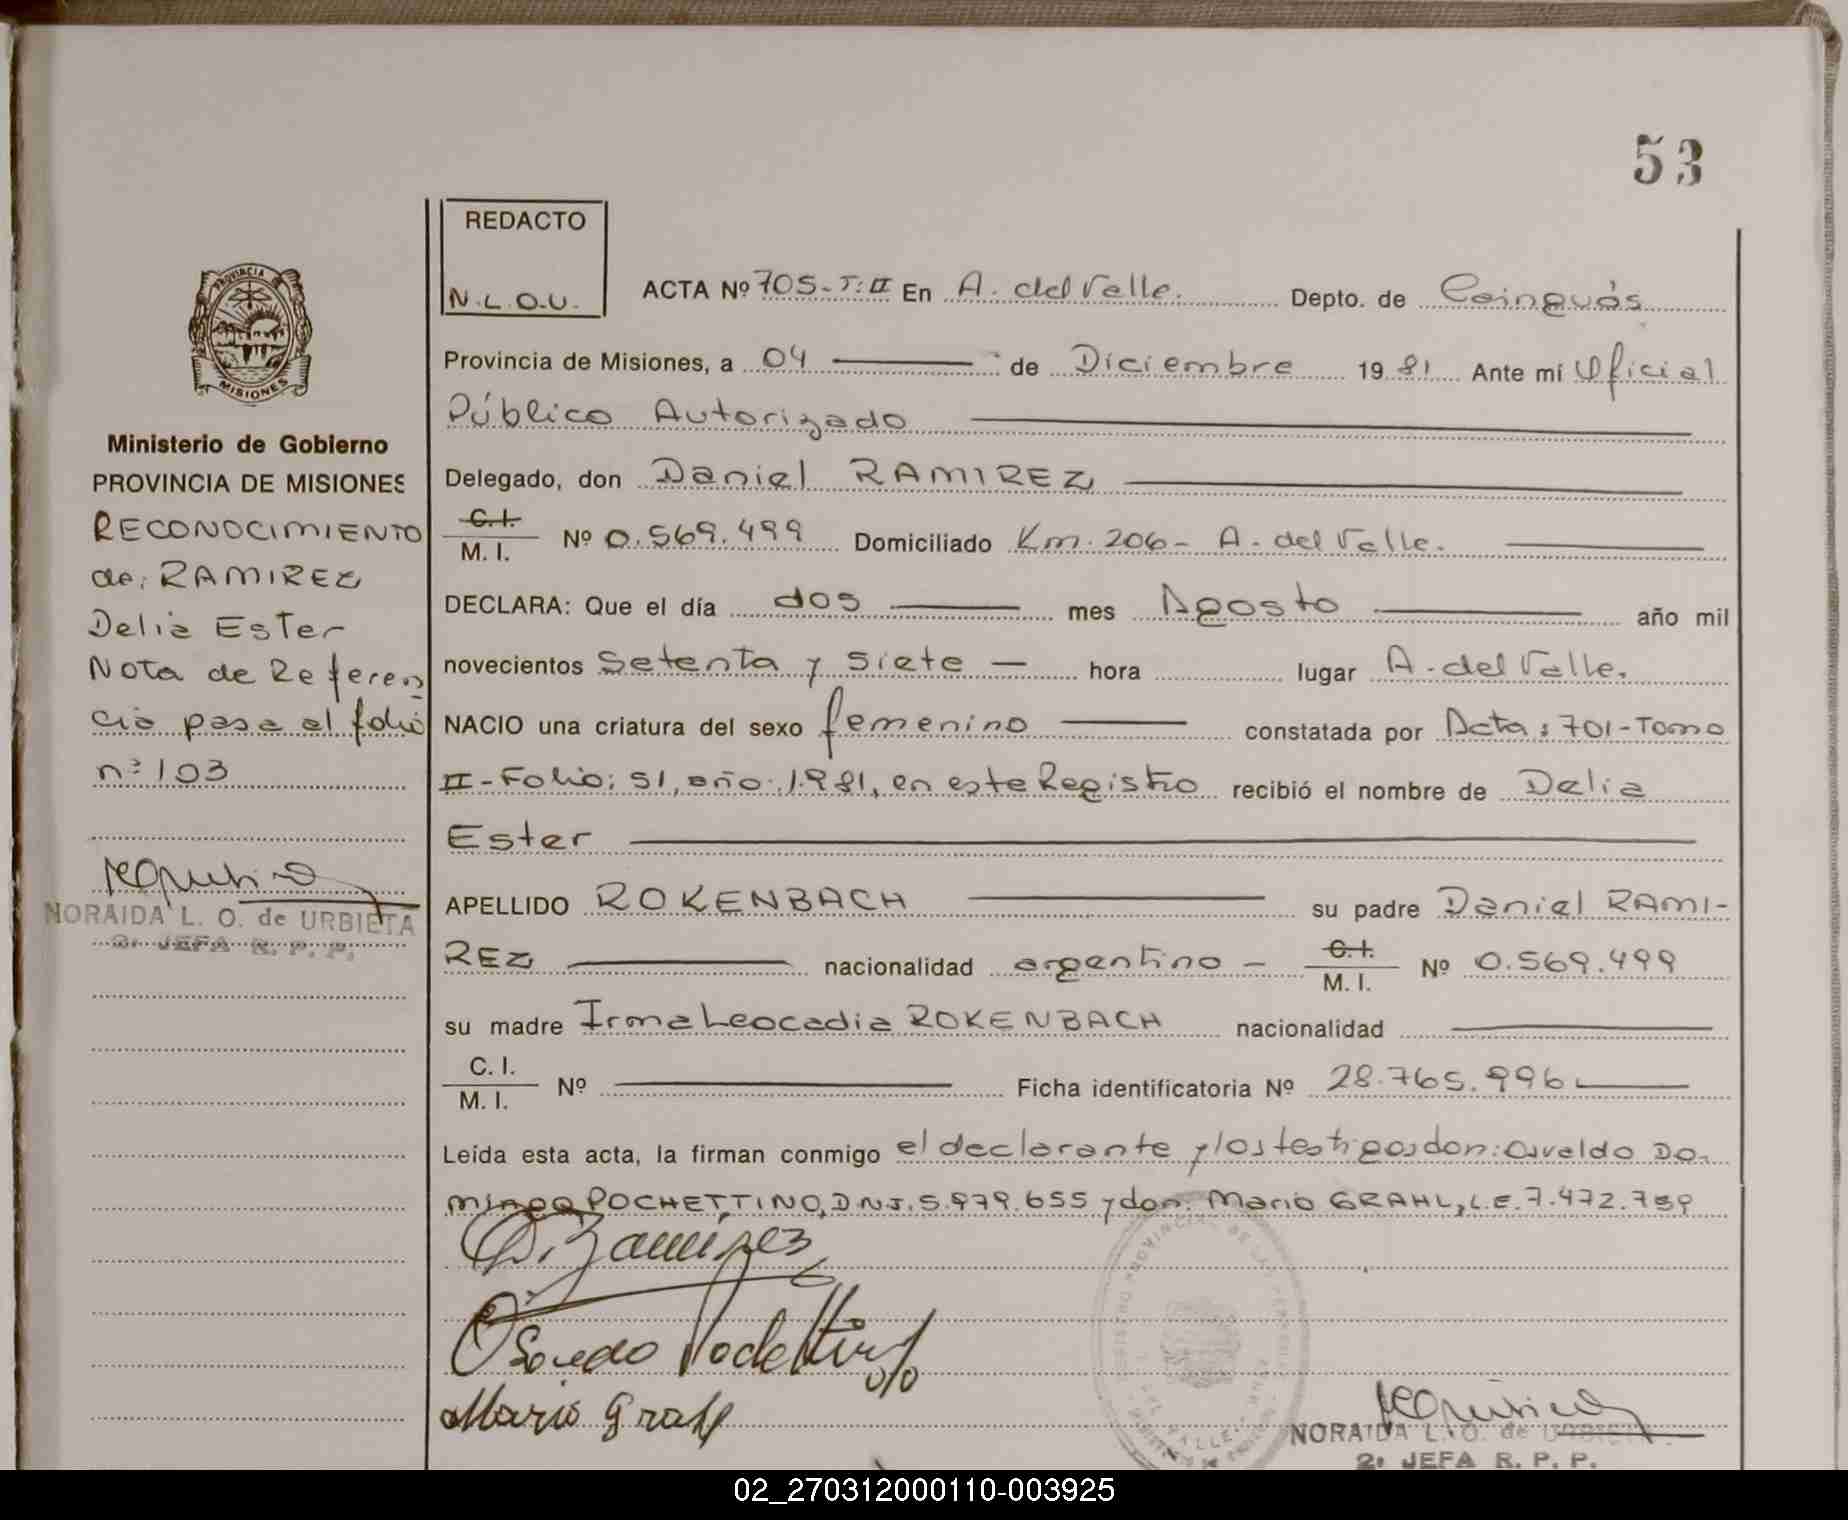 53
REDACTO
N.L.O.U.
ACTA Nº 705-T:II En A. del Valle. Depto. de Cainguás
Provincia de Misiones, a 04 de Diciembre 1981 Ante mí Oficial
Público Autorizado
Delegado, don Daniel RAMIREZ
C.I.
M. I. Nº 0.569.499 Domiciliado Km. 206- A. del Valle.
DECLARA: Que el día dos mes Agosto año mil
novecientos Setenta y Siete — hora lugar A. del Valle.
NACIO una criatura del sexo femenino constatada por Acta: 701-Tomo
II-Folio: 51, año: 1.981, en este Registro recibió el nombre de Delia
Ester
APELLIDO ROKENBACH su padre Daniel RAMI-
REZ nacionalidad argentino - C.I.
M. I. Nº 0.569.499
su madre Irma Leocadia ROKENBACH nacionalidad
C. I.
M. I. Nº Ficha identificatoria Nº 28.765.996
Leída esta acta, la firman conmigo el declarante y los testigos don: Osvaldo Do-
mingo POCHETTINO, D.N.I. 5.979.655 y don: Mario GRAHL, L.E. 7.472.759
D. Ramirez
Mario Grahl
NORAIDA L. O. de URBIETA
2ª JEFA R. P. P.
PROVINCIA
MISIONES
Ministerio de Gobierno
PROVINCIA DE MISIONES
RECONOCIMIENTO
de: RAMIREZ
Delia Ester
Nota de Referen
cia pasa al folio
nº 103
NORAIDA L. O. de URBIETA
2ª JEFA R. P. P.
02_270312000110-003925